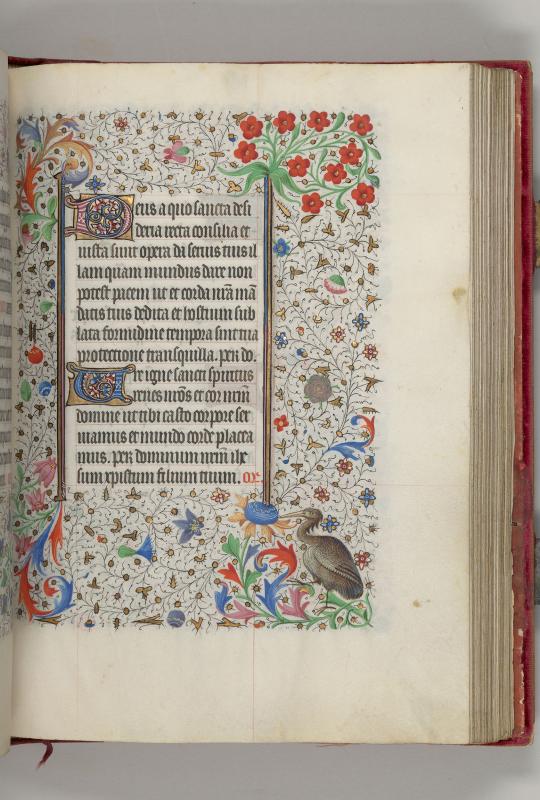 Deus a quo sancta desi
deria recta consilia et
iusta sunt opera da servis tuis il
lam quam mundus dare non
potest pacem ut et corda nr̄a mā
datis tuis dedita et hostium sub
lata formidine tempora sint tua
protectione tranquilla. per do.
Ure igne sancti spiritus
renes nr̄os et cor nr̄m
domine ut tibi casto corpore ser
viamus et mundo corde placea
mus. per dominum nr̄m ihx̄
sum xpistum filium tuum.